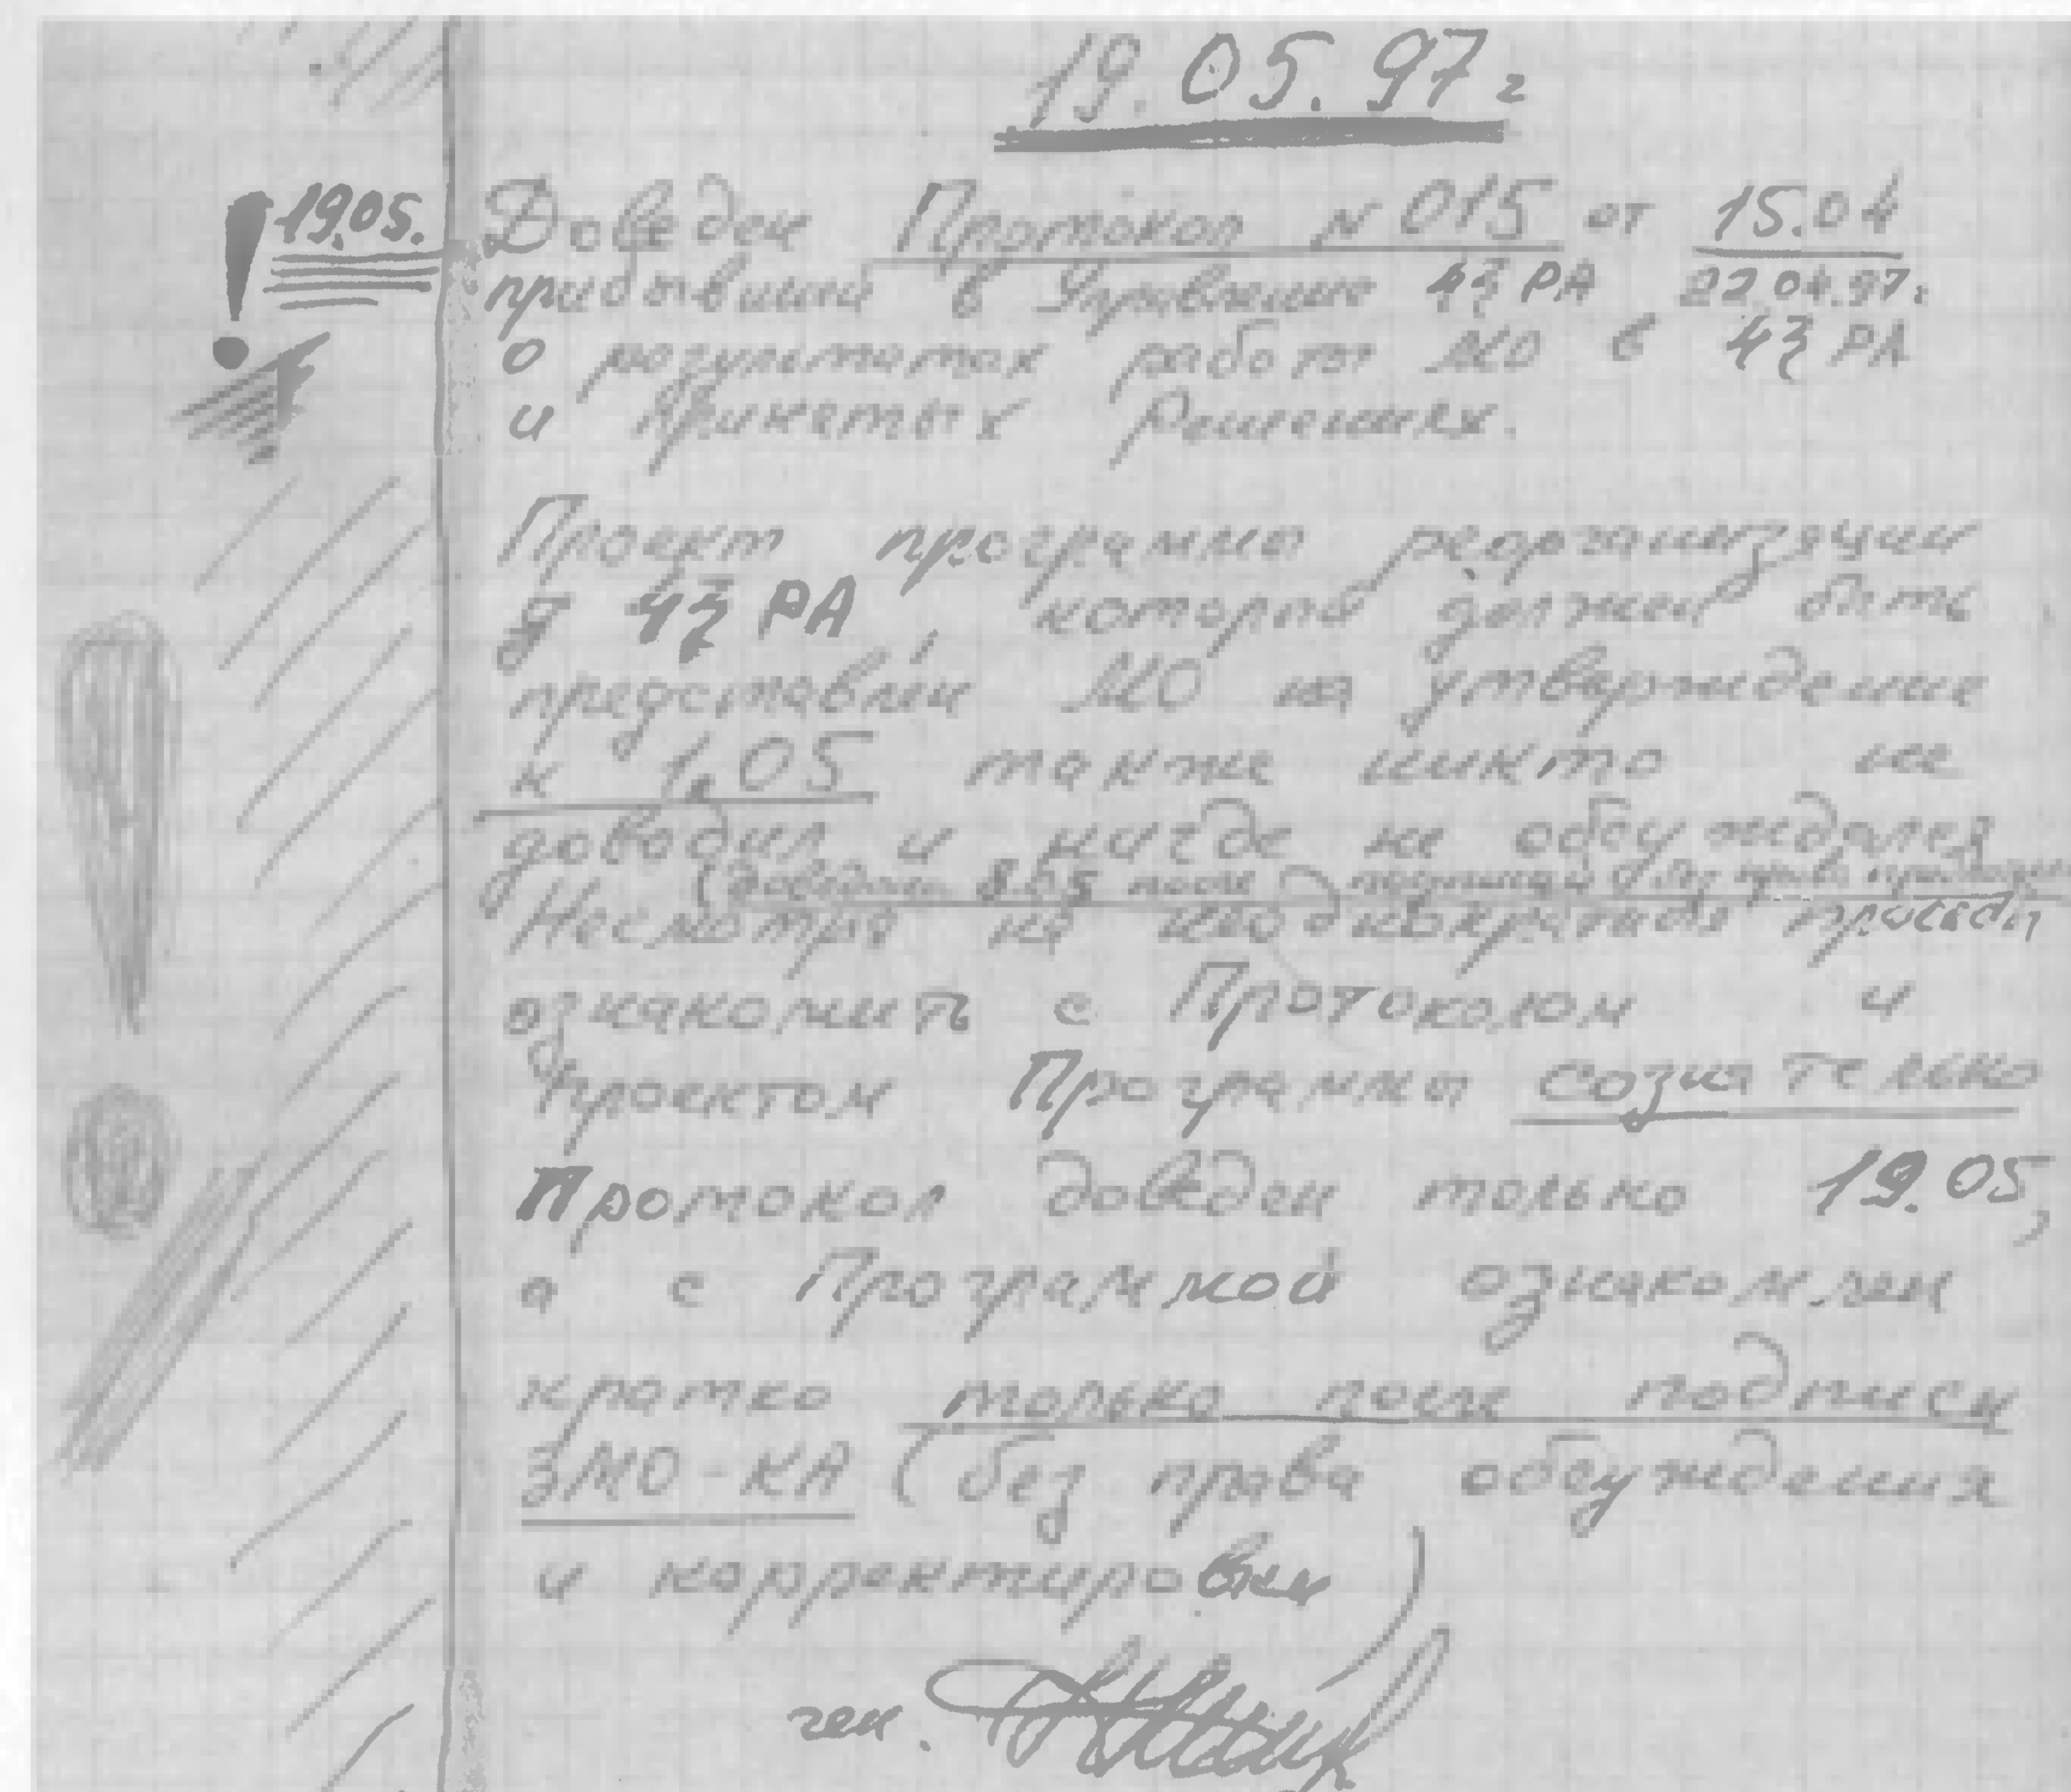 19.05.97г
! 19.05.
Доведен Протокол № 015 от 15.04
прибывший в Управление 43 РА 22.04.97г
о результатах работы МО в 43 РА
и принятых Решениях.
Проект программы реорганизации
д 43 РА, который должен быть
представлен МО на утверждение
к 1.05 также никто не
доводил и нигде не обсуждался
(доведена 8.05 после подписи без права
Несмотря на неоднократные просьбы
ознакомить с Протоколом и
Проектом Программы сознательно
Протокол доведен только 19.05,
а с Программой ознакомлен
кратко только после подписи
ЗМО-КА (без права обсуждения
и корректировки)
ген.